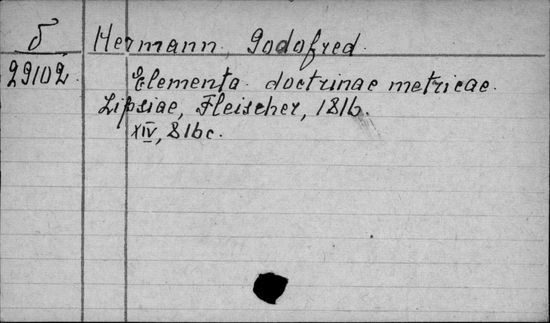 δ Hermann, Godofred.
29102 Elementa doctrinae metricae.
Lipsiae, Fleischer, 1816.
XIV, 816 c.